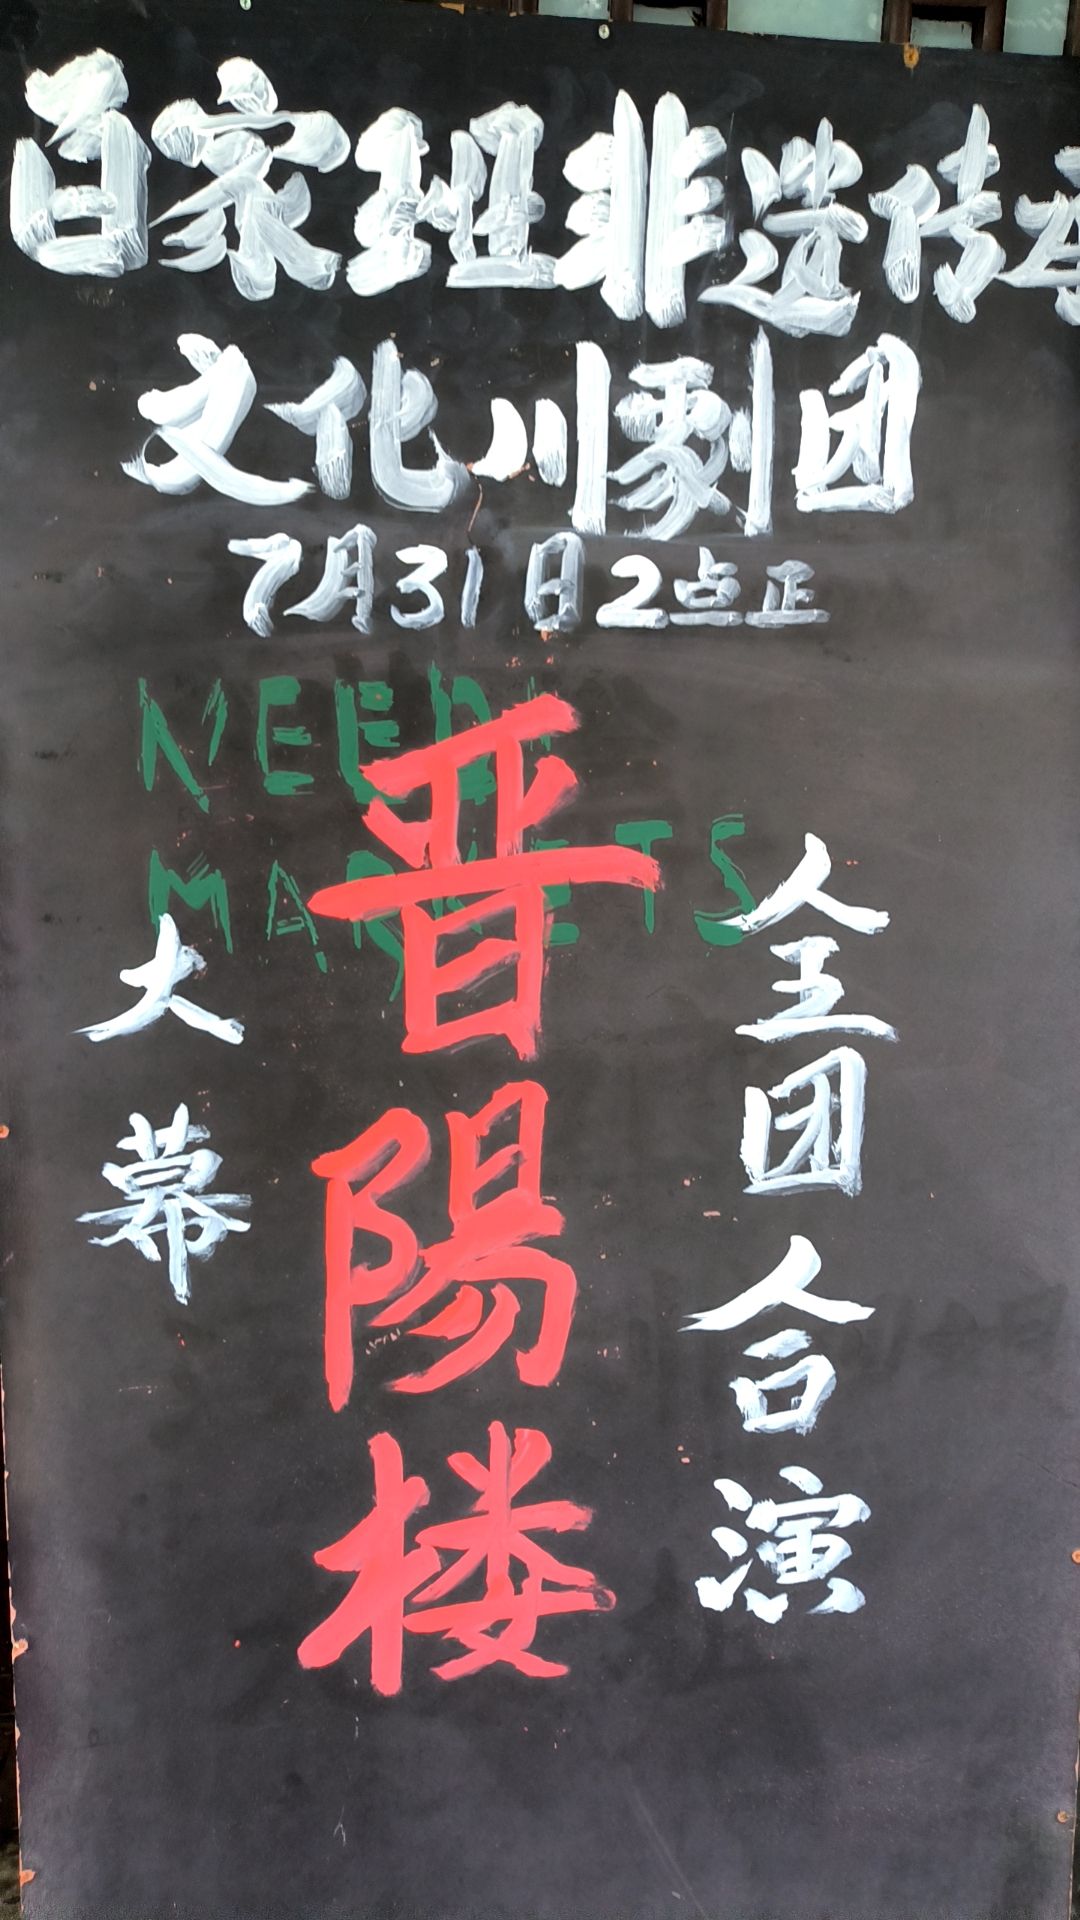 百家班非遗传承
文化川劇团
7月31日2点正
NEED
MARKETS
大幕
晋陽楼
全团合演